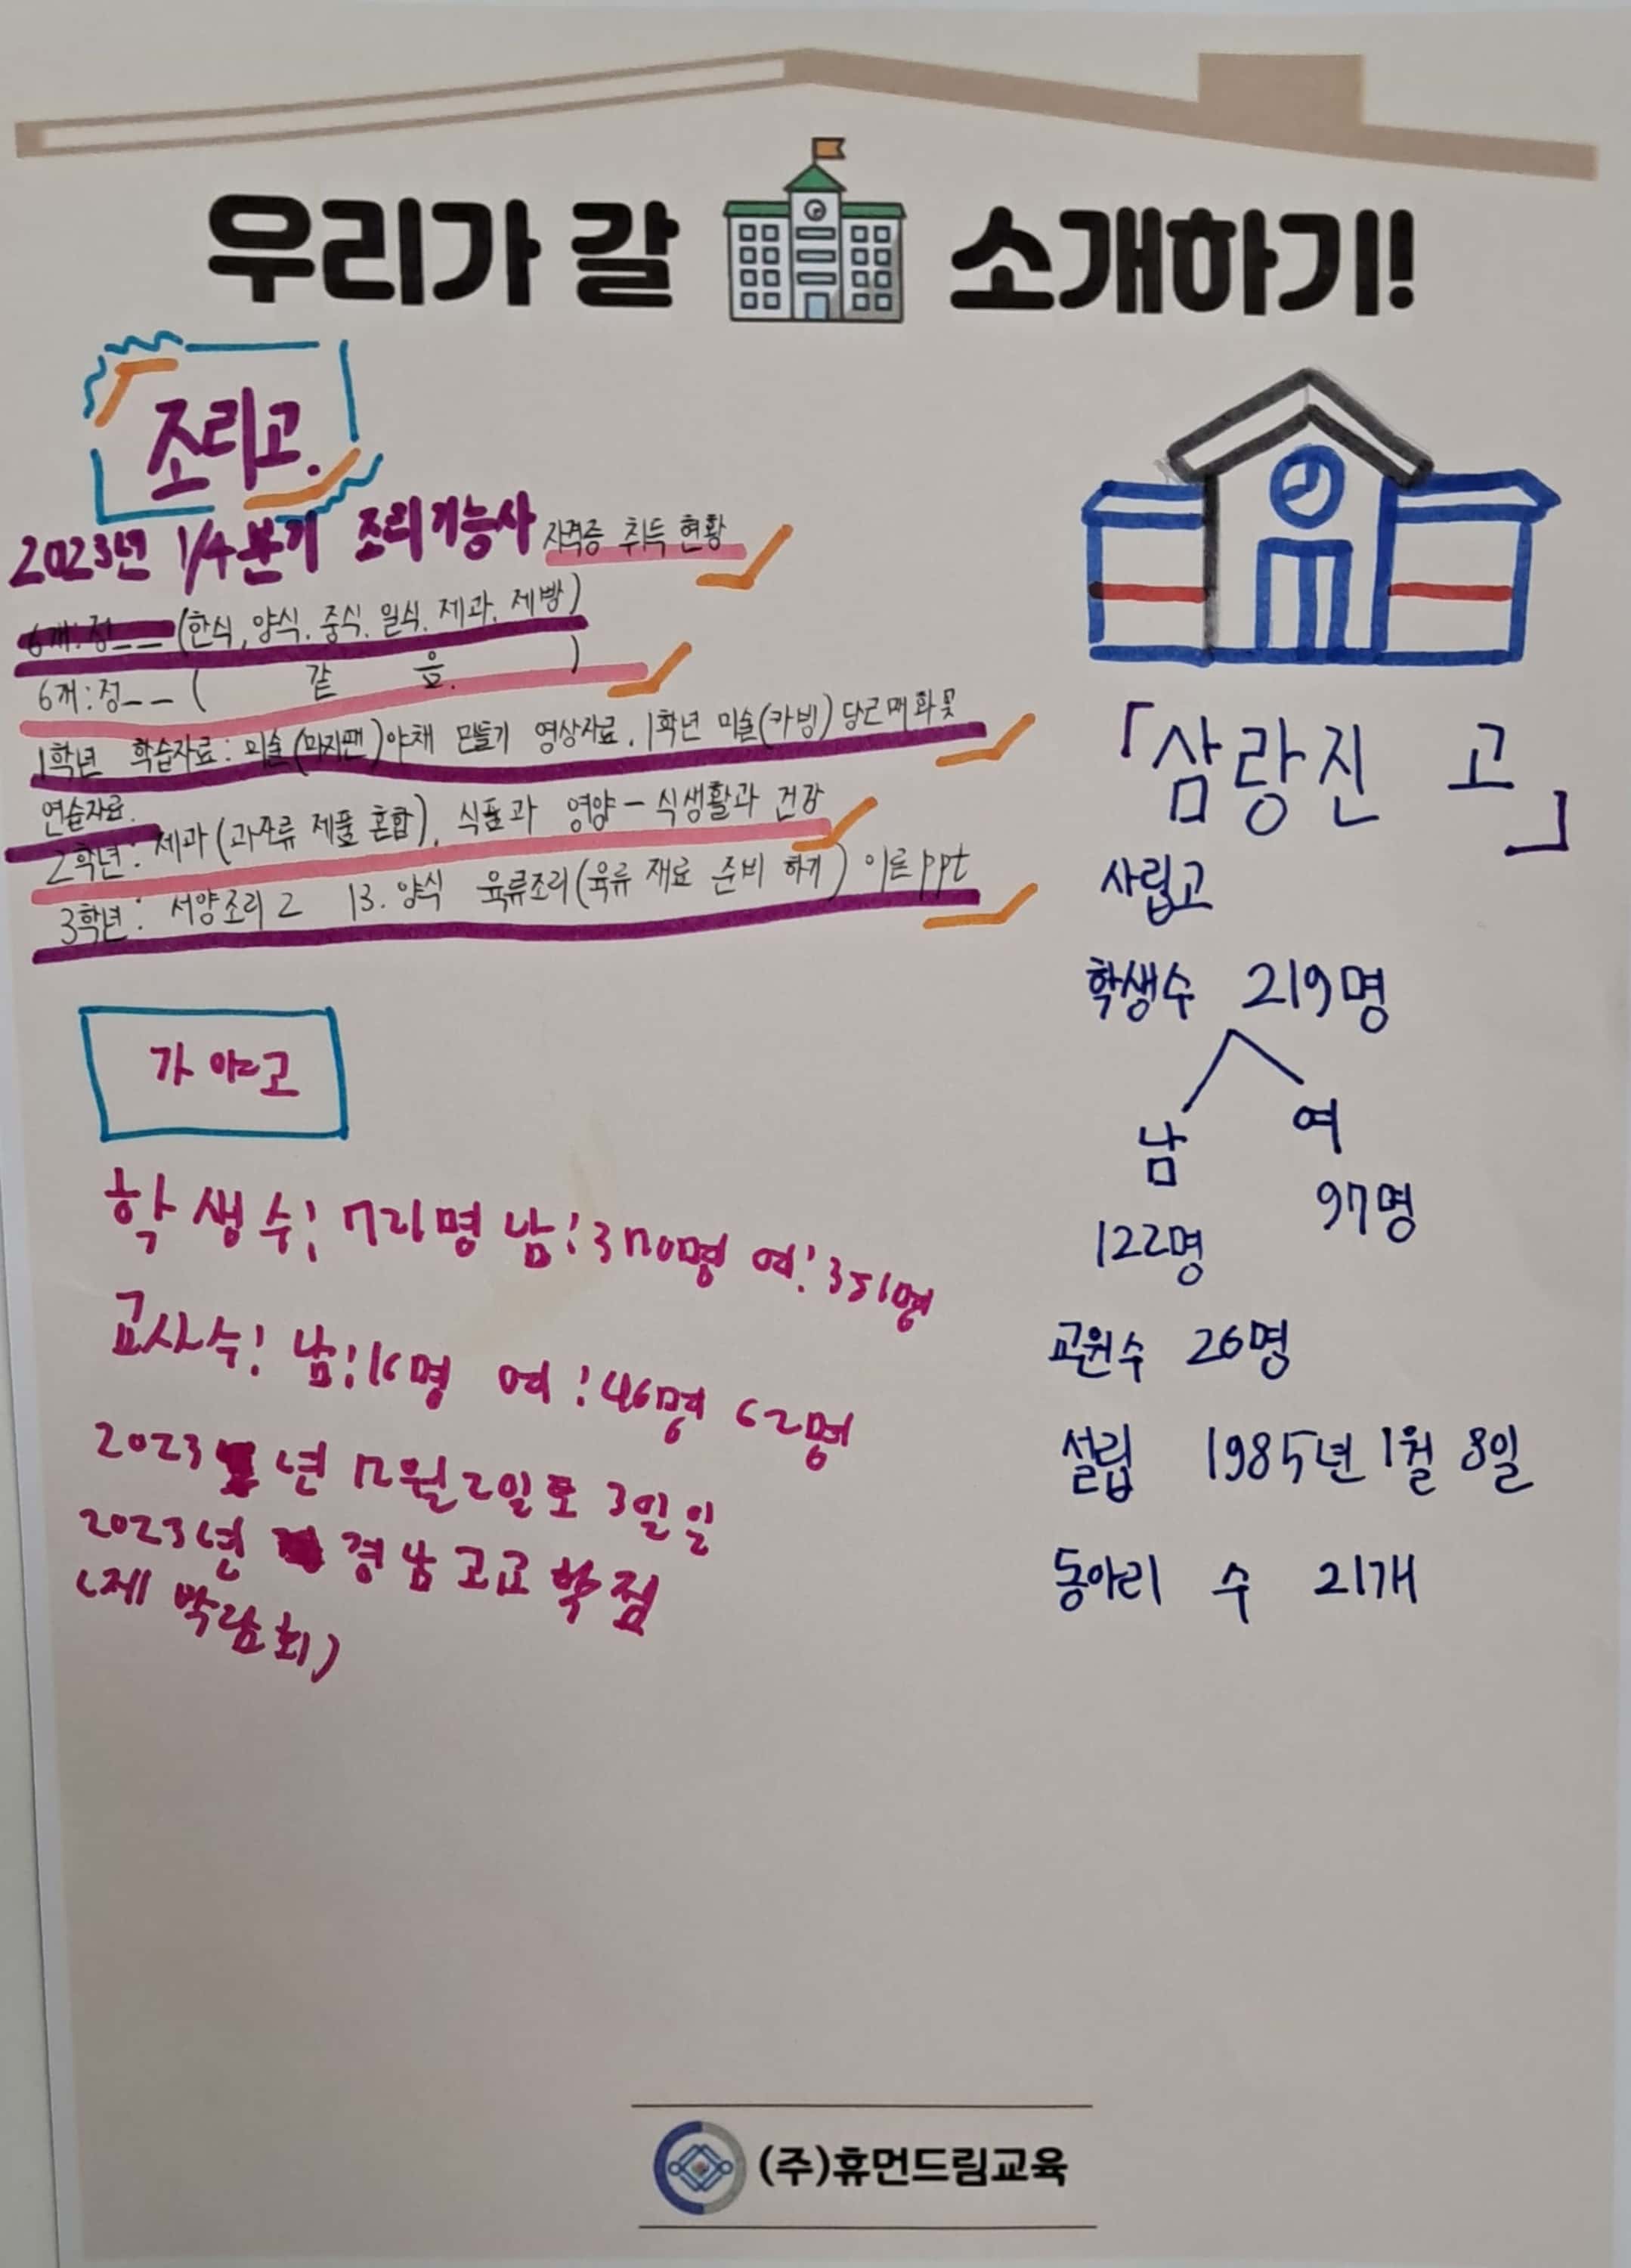 우리가 갈 소개하기!
조리고.
2023년 1/4분기 조리기능사 자격증 취득 현황
6개:정__ (한식, 양식. 중식. 일식. 제과. 제빵)
6개:정__ ( 같 음. )
1학년 학습자료: 미술(마지팬)야채 만들기 영상자료. 1학년 미술(카빙) 당근매화꽃
연습자료.
2학년: 제과(과자류 제품 혼합), 식품과 영양-식생활과 건강
3학년: 서양조리2 13. 양식 육류조리(육류 재료 준비 하기) 이론ppt
가야고
학생수: 721명 남:370명 여:351명
교사수: 남:16명 여:46명 62명
2023년 12월2일토 3일일
2023년 경남고교학점
(제 박람회)
「삼랑진 고」
사립고
학생수 219명
남 여
122명 97명
교원수 26명
설립 1985년 1월 8일
동아리 수 21개
(주)휴먼드림교육